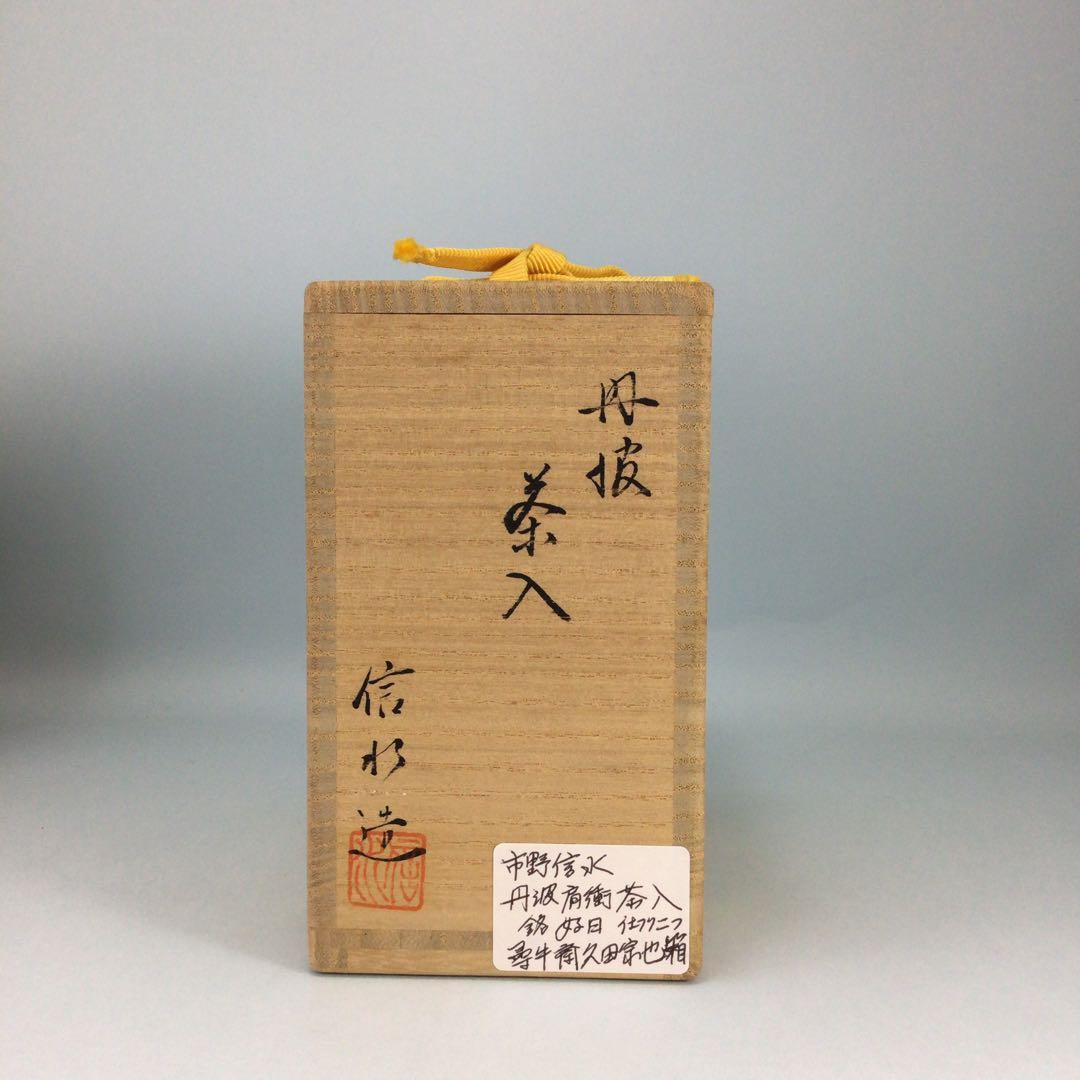 丹波
茶入
信水造
信水
市野信水
丹波肩衝茶入
銘 好日 仕フクニツ
尋牛斎久田宗也箱